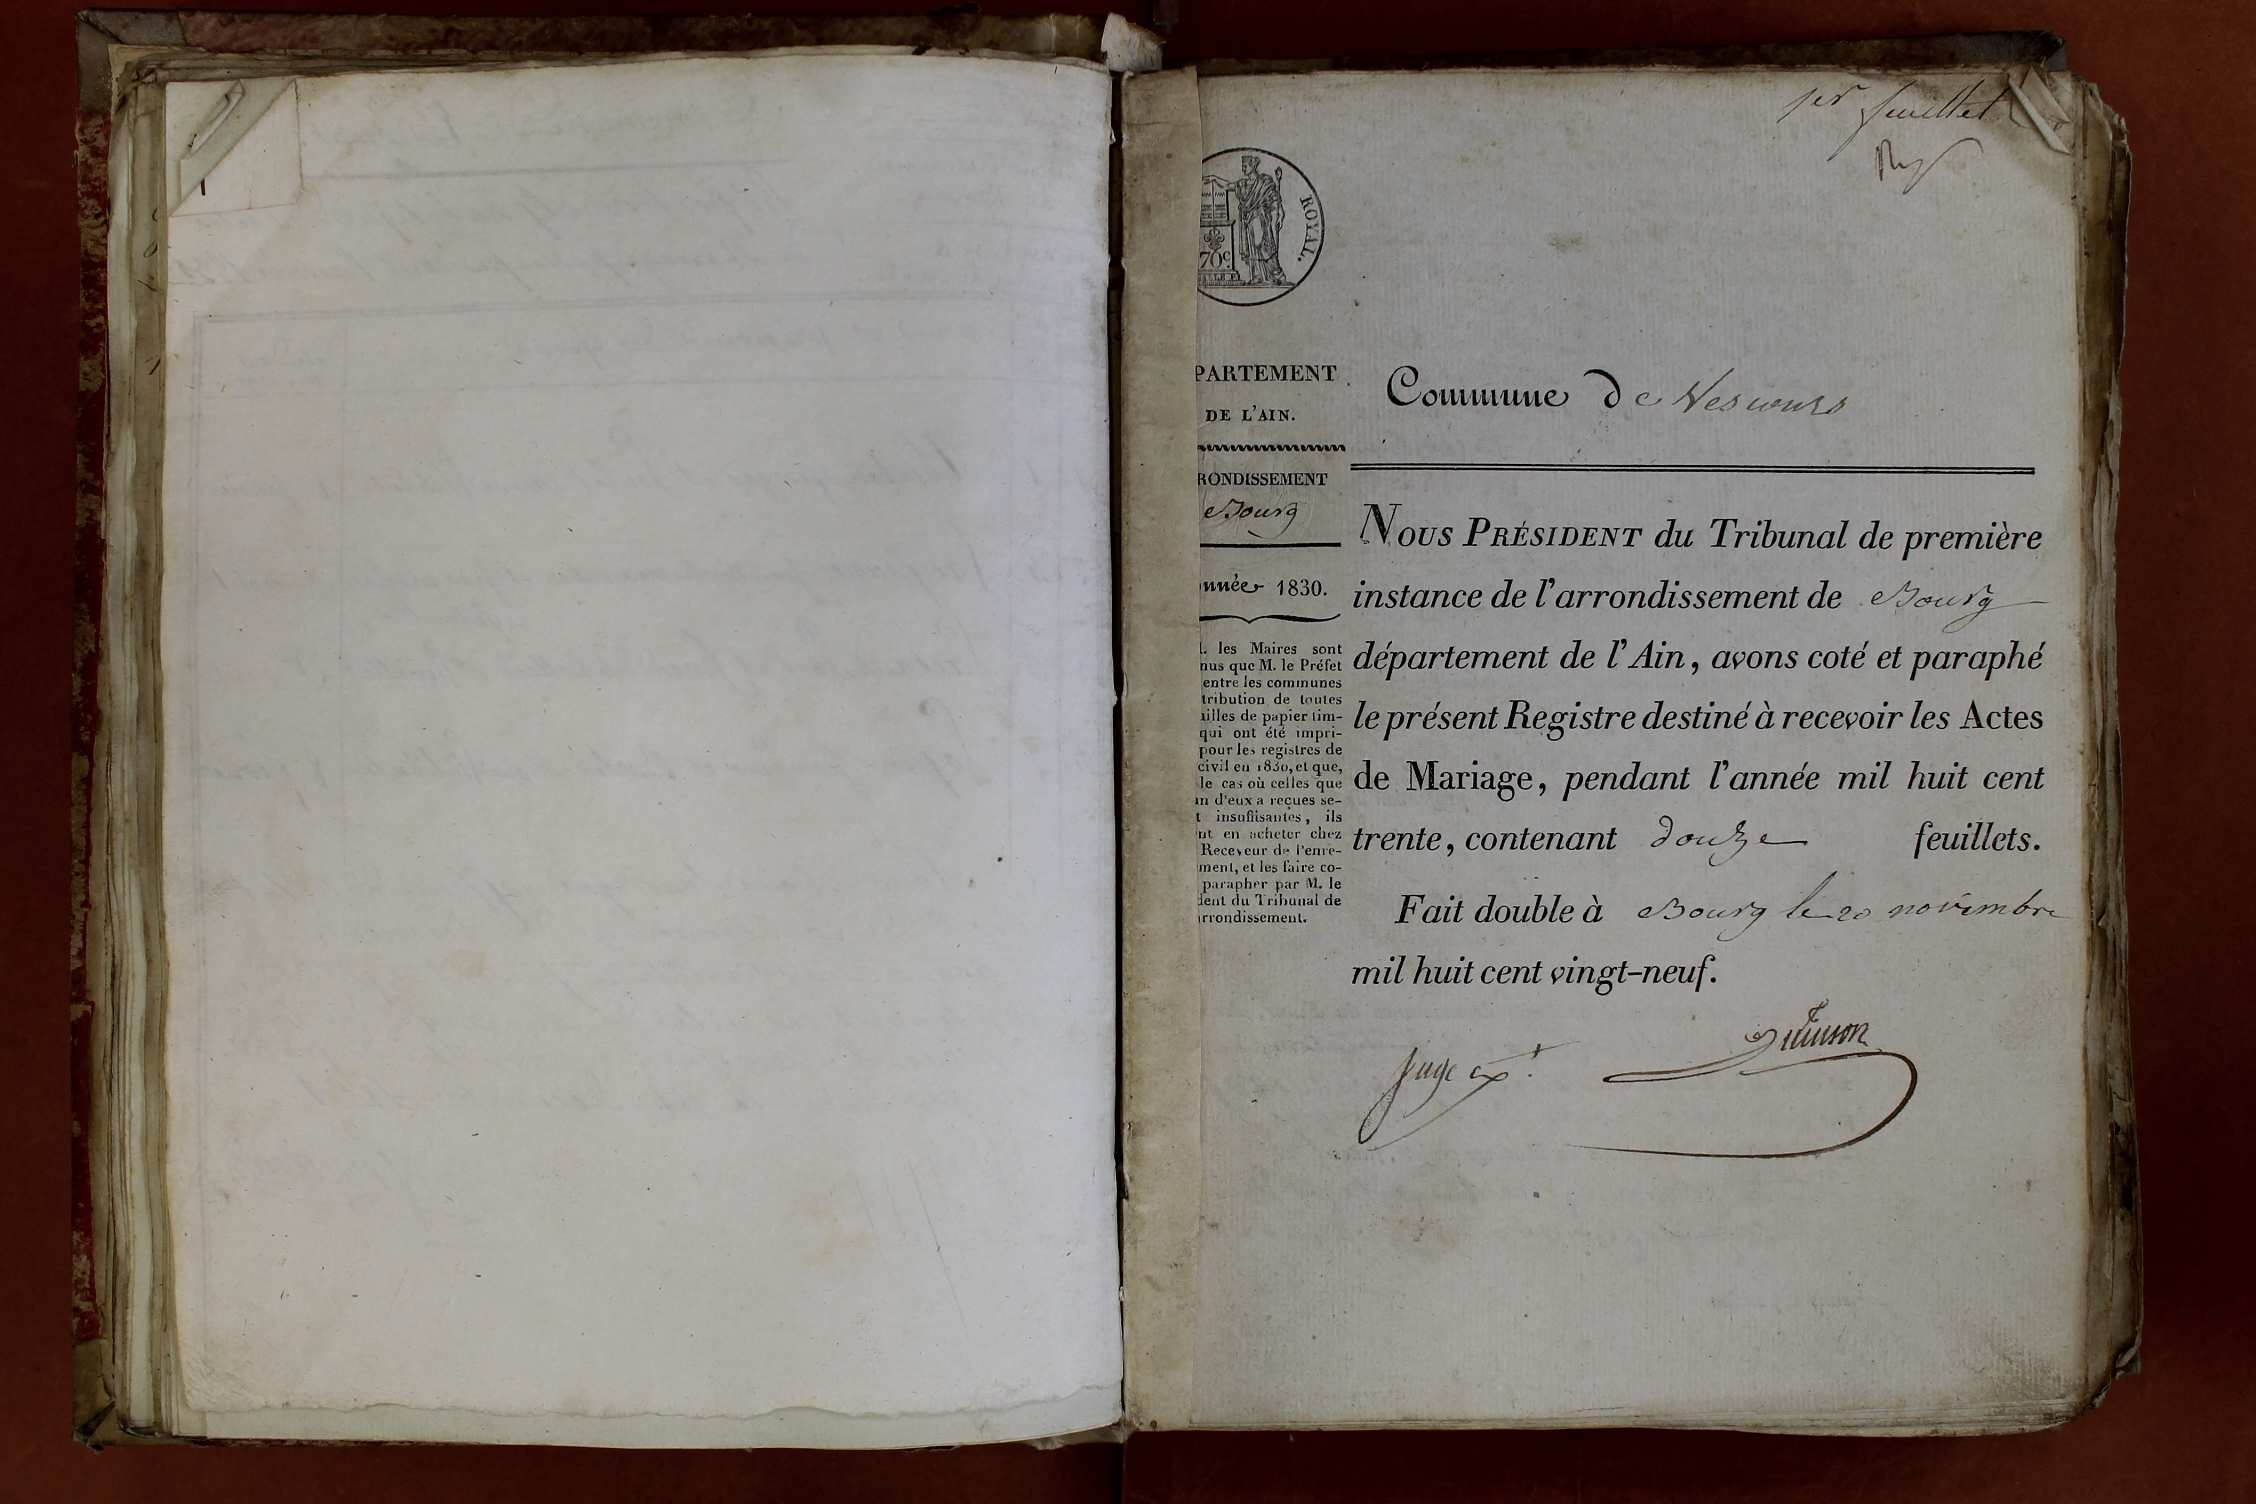 1er feuillet
ROYAL.
70c
PARTEMENT
DE L'AIN.
RONDISSEMENT
e Bourg
nnée 1830.
. les Maires sont
nus que M. le Préfet
entre les communes
tribution de toutes
illes de papier tim-
qui ont été impri-
pour les registres de
civil en 1830, et que,
le cas où celles que
n d'eux a reçues se-
t insuffisantes, ils
nt en acheter chez
Receveur de l'enre-
ment, et les faire co-
parapher par M. le
dent du Tribunal de
rrondissement.
Commune de Vescours
NOUS PRÉSIDENT du Tribunal de première
instance de l'arrondissement de Bourg
département de l'Ain, avons coté et paraphé
le présent Registre destiné à recevoir les Actes
de Mariage, pendant l'année mil huit cent
trente, contenant douze feuillets.
Fait double à Bourg le 20 novembre
mil huit cent vingt-neuf.
Juge